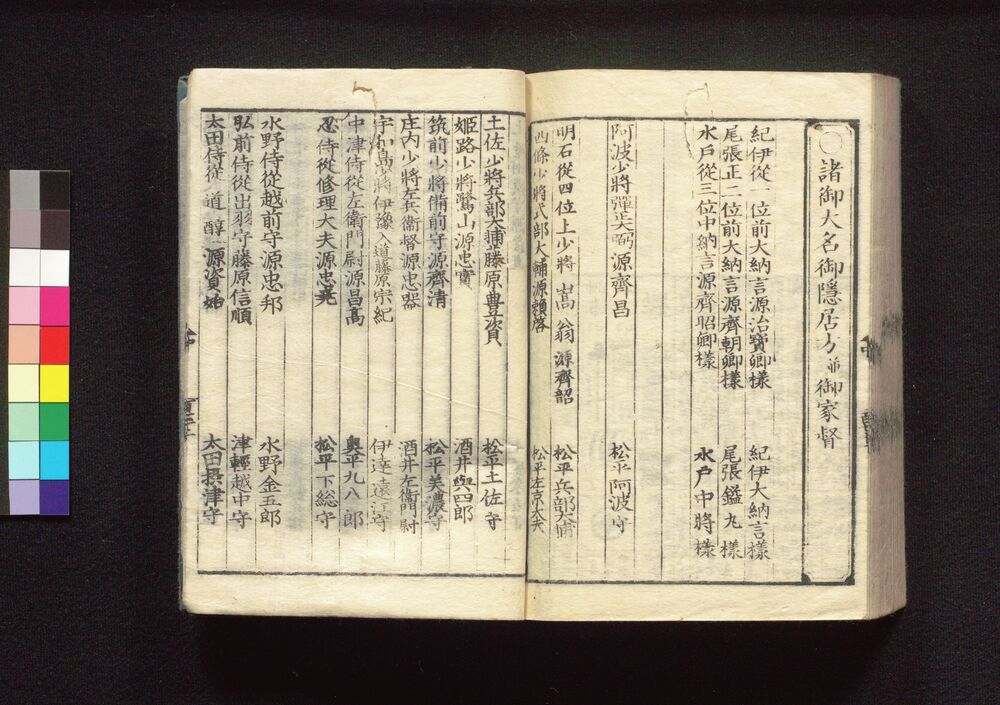 〇諸御大名御隱居方並御家督
紀伊從一位前大納言源治寶卿樣 紀伊大納言樣
尾張正二位前大納言源齊朝卿樣 尾張鎰丸樣
水戸從三位中納言源齊昭卿樣 水戸中將樣
阿波少將彈正大弼源齊昌 松平阿波守
明石從四位上少將嵩翁源齊韶 松平兵部大輔
西條少將式部大輔源頼啓 松平左京大夫
土佐少將兵部大輔藤原豊資 松平土佐守
姫路少將鷺山源忠實 酒井與四郎
筑前少將備前守源齊清 松平美濃守
庄内少將左兵衞督源忠器 酒井左衞門尉
宇和島少將伊豫入道藤原宗紀 伊達遠江守
中津侍從左衞門尉源昌高 奥平九八郎
忍侍從修理大夫源忠堯 松平下総守
水野侍從越前守源忠邦 水野金五郎
弘前侍從出羽守藤原信順 津輕越中守
太田侍從道醇源資始 太田摂津守